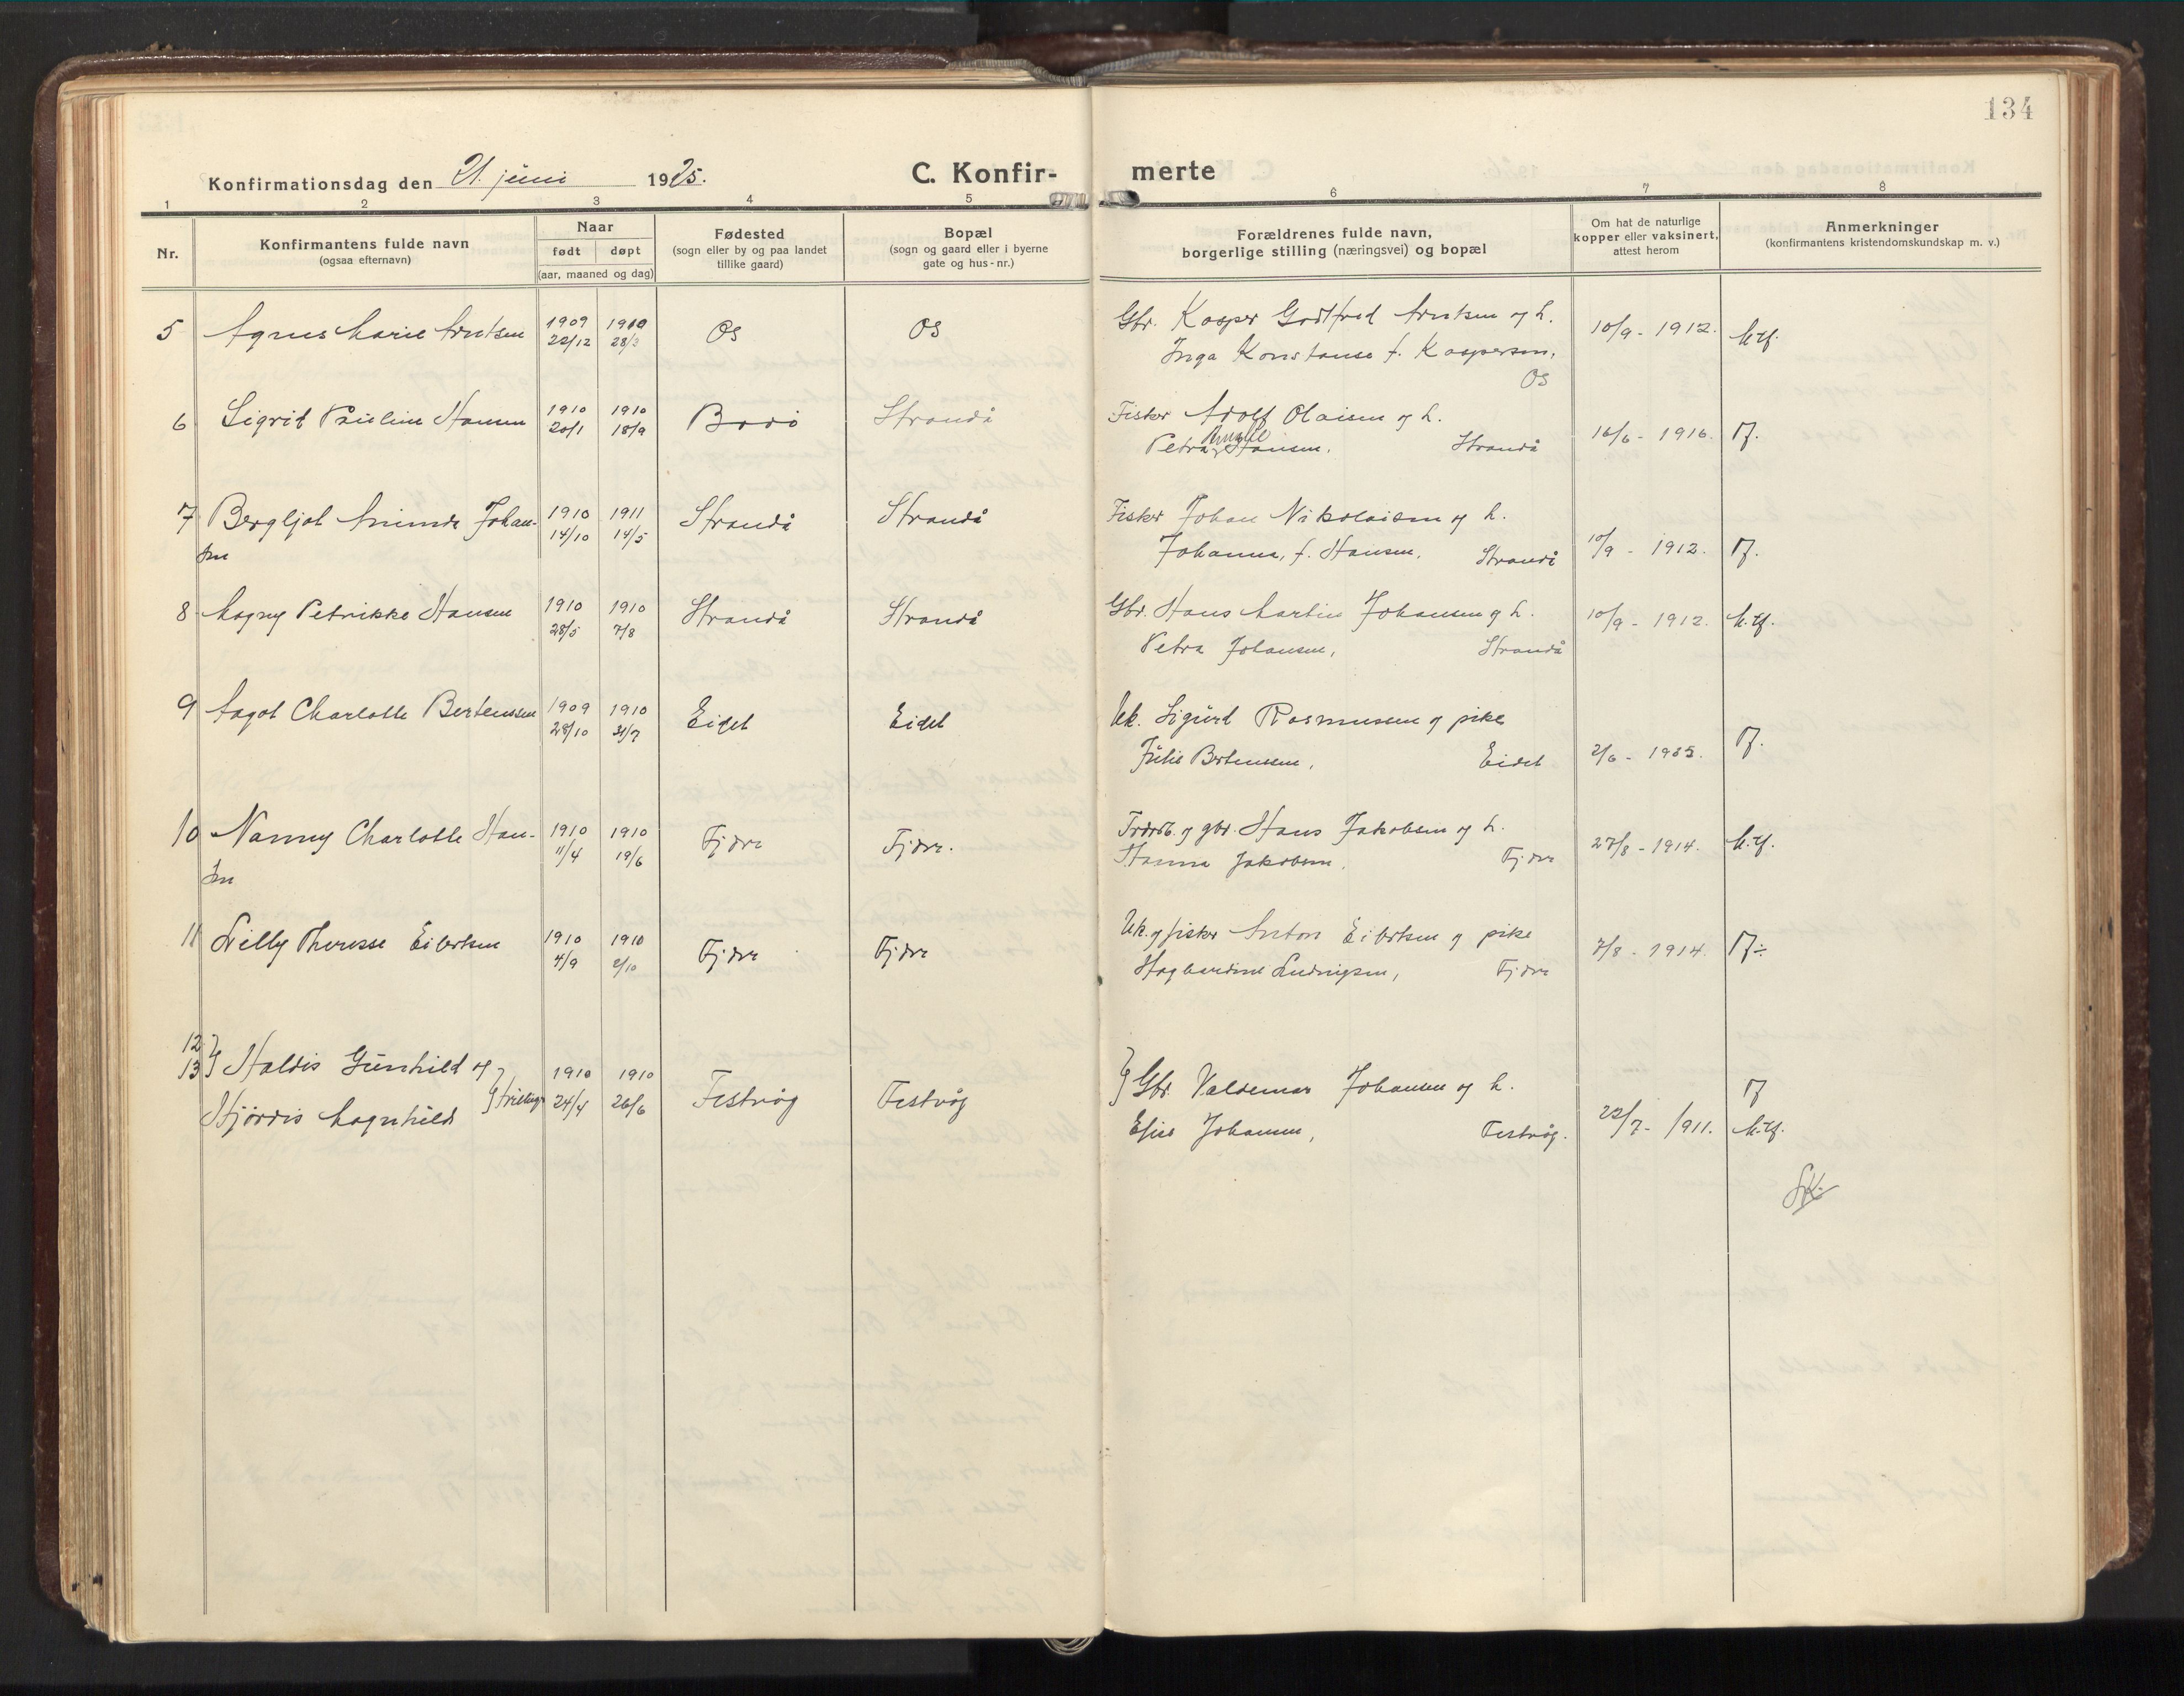 134
Konfirmationsdag den 21. juni 1925.
C. Konfir-
merte
1 2 3 4 5 6 7 8
Nr.
Konfirmantens fulde navn
(ogsaa efternavn)
Naar
født døpt
(aar, maaned og dag)
Fødested
(sogn eller by og paa landet
tillike gaard)
Bopæl
(sogn og gaard eller i byerne
gate og hus-nr.)
Forældrenes fulde navn,
borgerlige stilling (næringsvei) og bopæl
Om hat de naturlige
kopper eller vaksinert,
attest herom
Anmerkninger
(konfirmantens kristendomskundskap m. v.)
5 Agnes Marie Arntsen 1909 1910 Os Os Gbr. Kasper Godtfred Arntsen og h. 10/9 - 1912. M.tf.
22/12 28/3 Inga Konstanse f. Kaspersen,
Os
6 Sigrid Pauline Hansen 1910 1910 Bodö Strandå Fisker Adolf Olaisen og h.
20/1 18/9 Petra Hansen. Strandå 16/6 - 1916.
7 Bergljot Arminda Johan- 1910 1911 Strandå Strandå Fisker Johan Nikolaisen og h.
sen 14/10 14/5 Johanna, f. Hansen. Strandå 10/9 - 1912.
8 Magny Petrikke Hansen 1910 1910 Strandå Strandå Gbr. Hans Martin Johansen og h. 10/9 - 1912. M.tf.
28/5 7/8 Petra Johansen, Strandå
9 Aagot Charlotte Bertenssen 1909 1910 Eidet Eidet Uk. Sigurd Rasmussen og pike
28/10 31/7 Julie Bertenssen, Eidet 2/6 -
10 Nanny Charlotte Han- 1910 1910 Fjære Fjære. og gbr. Hans Jakobsen og h.
sen 11/4 19/6 Hanna Jakobsen. Fjære 27/8 - 1914. M.tf.
11 Lilly Theresse Eibertsen 1910 1910 Fjære Fjære Uk. og fisker Anton Eibertsen og pike
4/9 2/10 Hagbardine Ludvigsen, Fjære 7/8 - 1914.
12
13 } Haldis Gunhild og 1910 1910 } Gbr. Valdemar Johansen og h.
Hjördis Magnhild } tvillinger 24/4 26/6 Festvåg Festvåg Elise Johansen, Festvåg. 22/7 - 1911. M.tf.